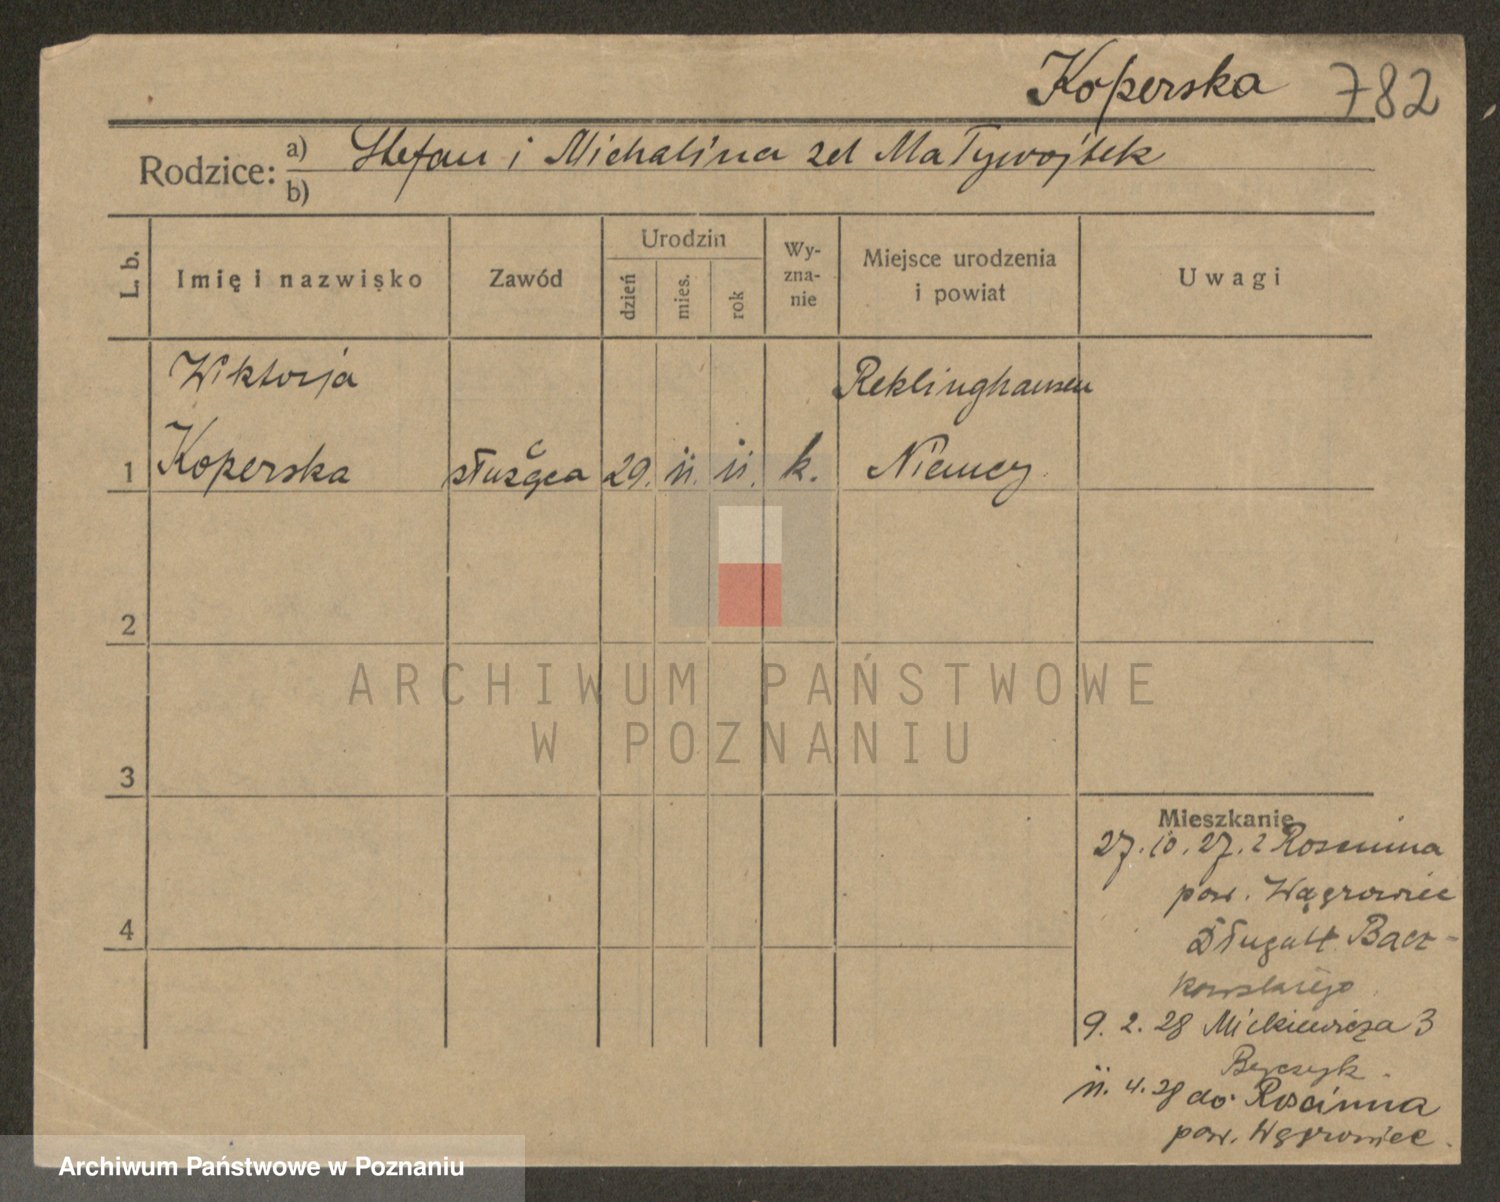 Koperska 782
Rodzice: a) Stefan i Michalina zd Matywojtek
b)
L. b.
Imię i nazwisko
Zawód
Urodzin
dzień
mies.
rok
Wy-
zna-
nie
Miejsce urodzenia
i powiat
Uwagi
Wiktorja
Reklinghausen
1 Koperska służąca 29. ii. ii. k. Niemcy.
2
3
4
ARCHIWUM PAŃSTWOWE
W POZNANIU
Mieszkanie
27.10.27. z Roscinna
pow. Wągrowiec
Długa 4 Bacz-
kowskiego
9. 2. 28 Mickiewicza 3
Byczyk.
ii. 4. 28 do Roscinna
pow. Wągrowiec.
Archiwum Państwowe w Poznaniu